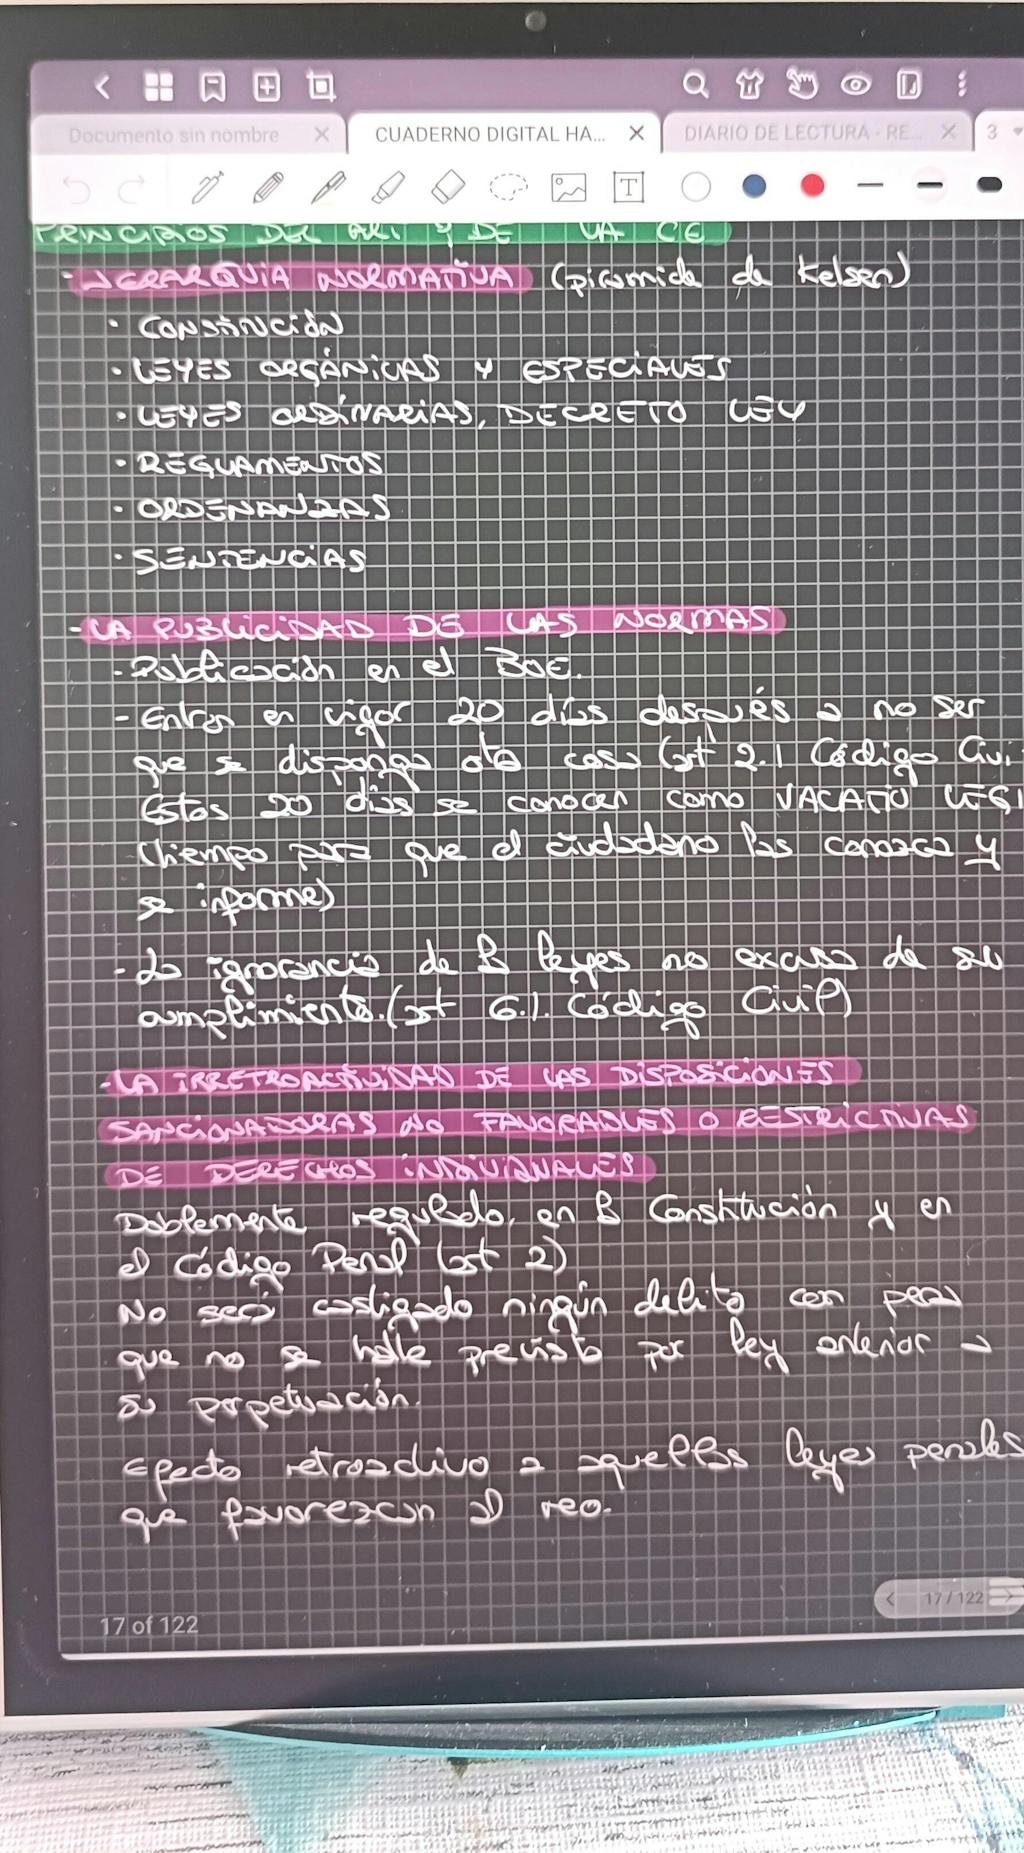 Documento sin nombre
CUADERNO DIGITAL HA...
DIARIO DE LECTURA - RE...
3
T
PRINCIPIOS DEL Y DE LA CE
- JERARQUIA NORMATIVA (piramide de Kelsen)
· CONSTITUCIÓN
· LEYES ORGÁNICAS Y ESPECIALES
· LEYES ORDINARIAS, DECRETO LEY
· REGLAMENTOS
· ORDENANZAS
· SENTENCIAS
- LA PUBLICIDAD DE LAS NORMAS
- Publicación en el BOE.
- Entran en vigor 20 días después a no ser
que se disponga otro caso (art 2.1 Código Civi
Estos 20 días se conocen como VACATIO LEGI
(tiempo para que el ciudadano las conozca y
se informe)
- La ignorancia de las leyes no excusa de su
cumplimiento. (art 6.1. Código Civil)
- LA IRRETROACTIVIDAD DE LAS DISPOSICIONES
SANCIONADORAS NO FAVORABLES O RESTRICTIVAS
DE DERECHOS INDIVIDUALES
Doblemente regulado, en la Constitución y en
el Código Penal (art 2)
No será castigado ningún delito con pena
que no se halle previsto por ley anterior a
su perpetuación.
Efecto retroactivo a aquellas leyes penales
que favorezcan al reo.
17 / 122
17 of 122